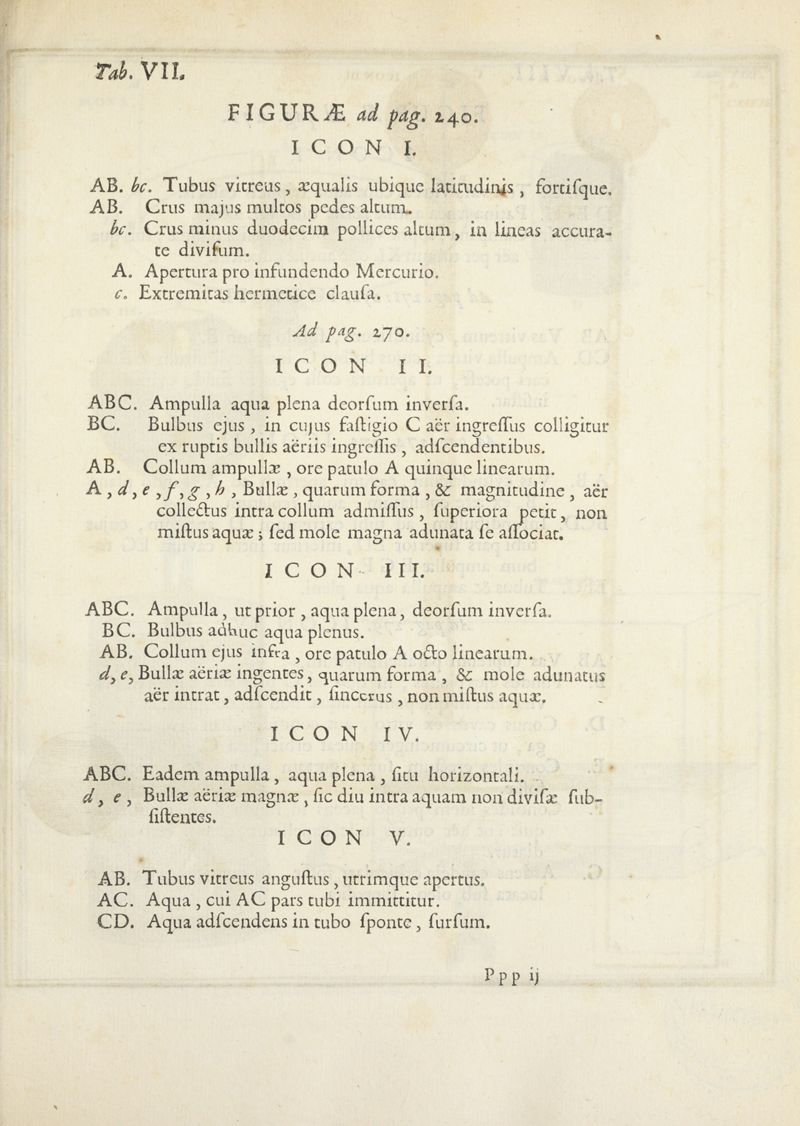 Tab. VII.
FIGURÆ ad pag. 240.
ICON I.
AB. bc. Tubus vitreus, æqualis ubique latitudinis, fortiſque.
AB. Crus majus multos pedes altum.
bc. Crus minus duodecim pollices altum, in lineas accura-
te diviſum.
A. Apertura pro infundendo Mercurio.
c. Extremitas hermetice clauſa.
Ad pag. 270.
ICON II.
ABC. Ampulla aqua plena deorſum inverſa.
BC. Bulbus ejus, in cujus faſtigio C aër ingreſſus colligitur
ex ruptis bullis aëriis ingreſſis, adſcendentibus.
AB. Collum ampullæ, ore patulo A quinque linearum.
A, d, e, f, g, h, Bullæ, quarum forma, & magnitudine, aër
collectus intra collum admiſſus, ſuperiora petit, non
miſtus aquæ; ſed mole magna adunata ſe aſſociat.
ICON III.
ABC. Ampulla, ut prior, aqua plena, deorſum inverſa.
BC. Bulbus adhuc aqua plenus.
AB. Collum ejus infra, ore patulo A octo linearum.
d, e, Bullæ aëriæ ingentes, quarum forma, & mole adunatus
aër intrat, adſcendit, ſincerus, non miſtus aquæ.
ICON IV.
ABC. Eadem ampulla, aqua plena, ſitu horizontali.
d, e, Bullæ aëriæ magnæ, ſic diu intra aquam non diviſæ ſub-
ſiſtentes.
ICON V.
AB. Tubus vitreus anguſtus, utrimque apertus.
AC. Aqua, cui AC pars tubi immittitur.
CD. Aqua adſcendens in tubo ſponte, ſurſum.
Ppp ij